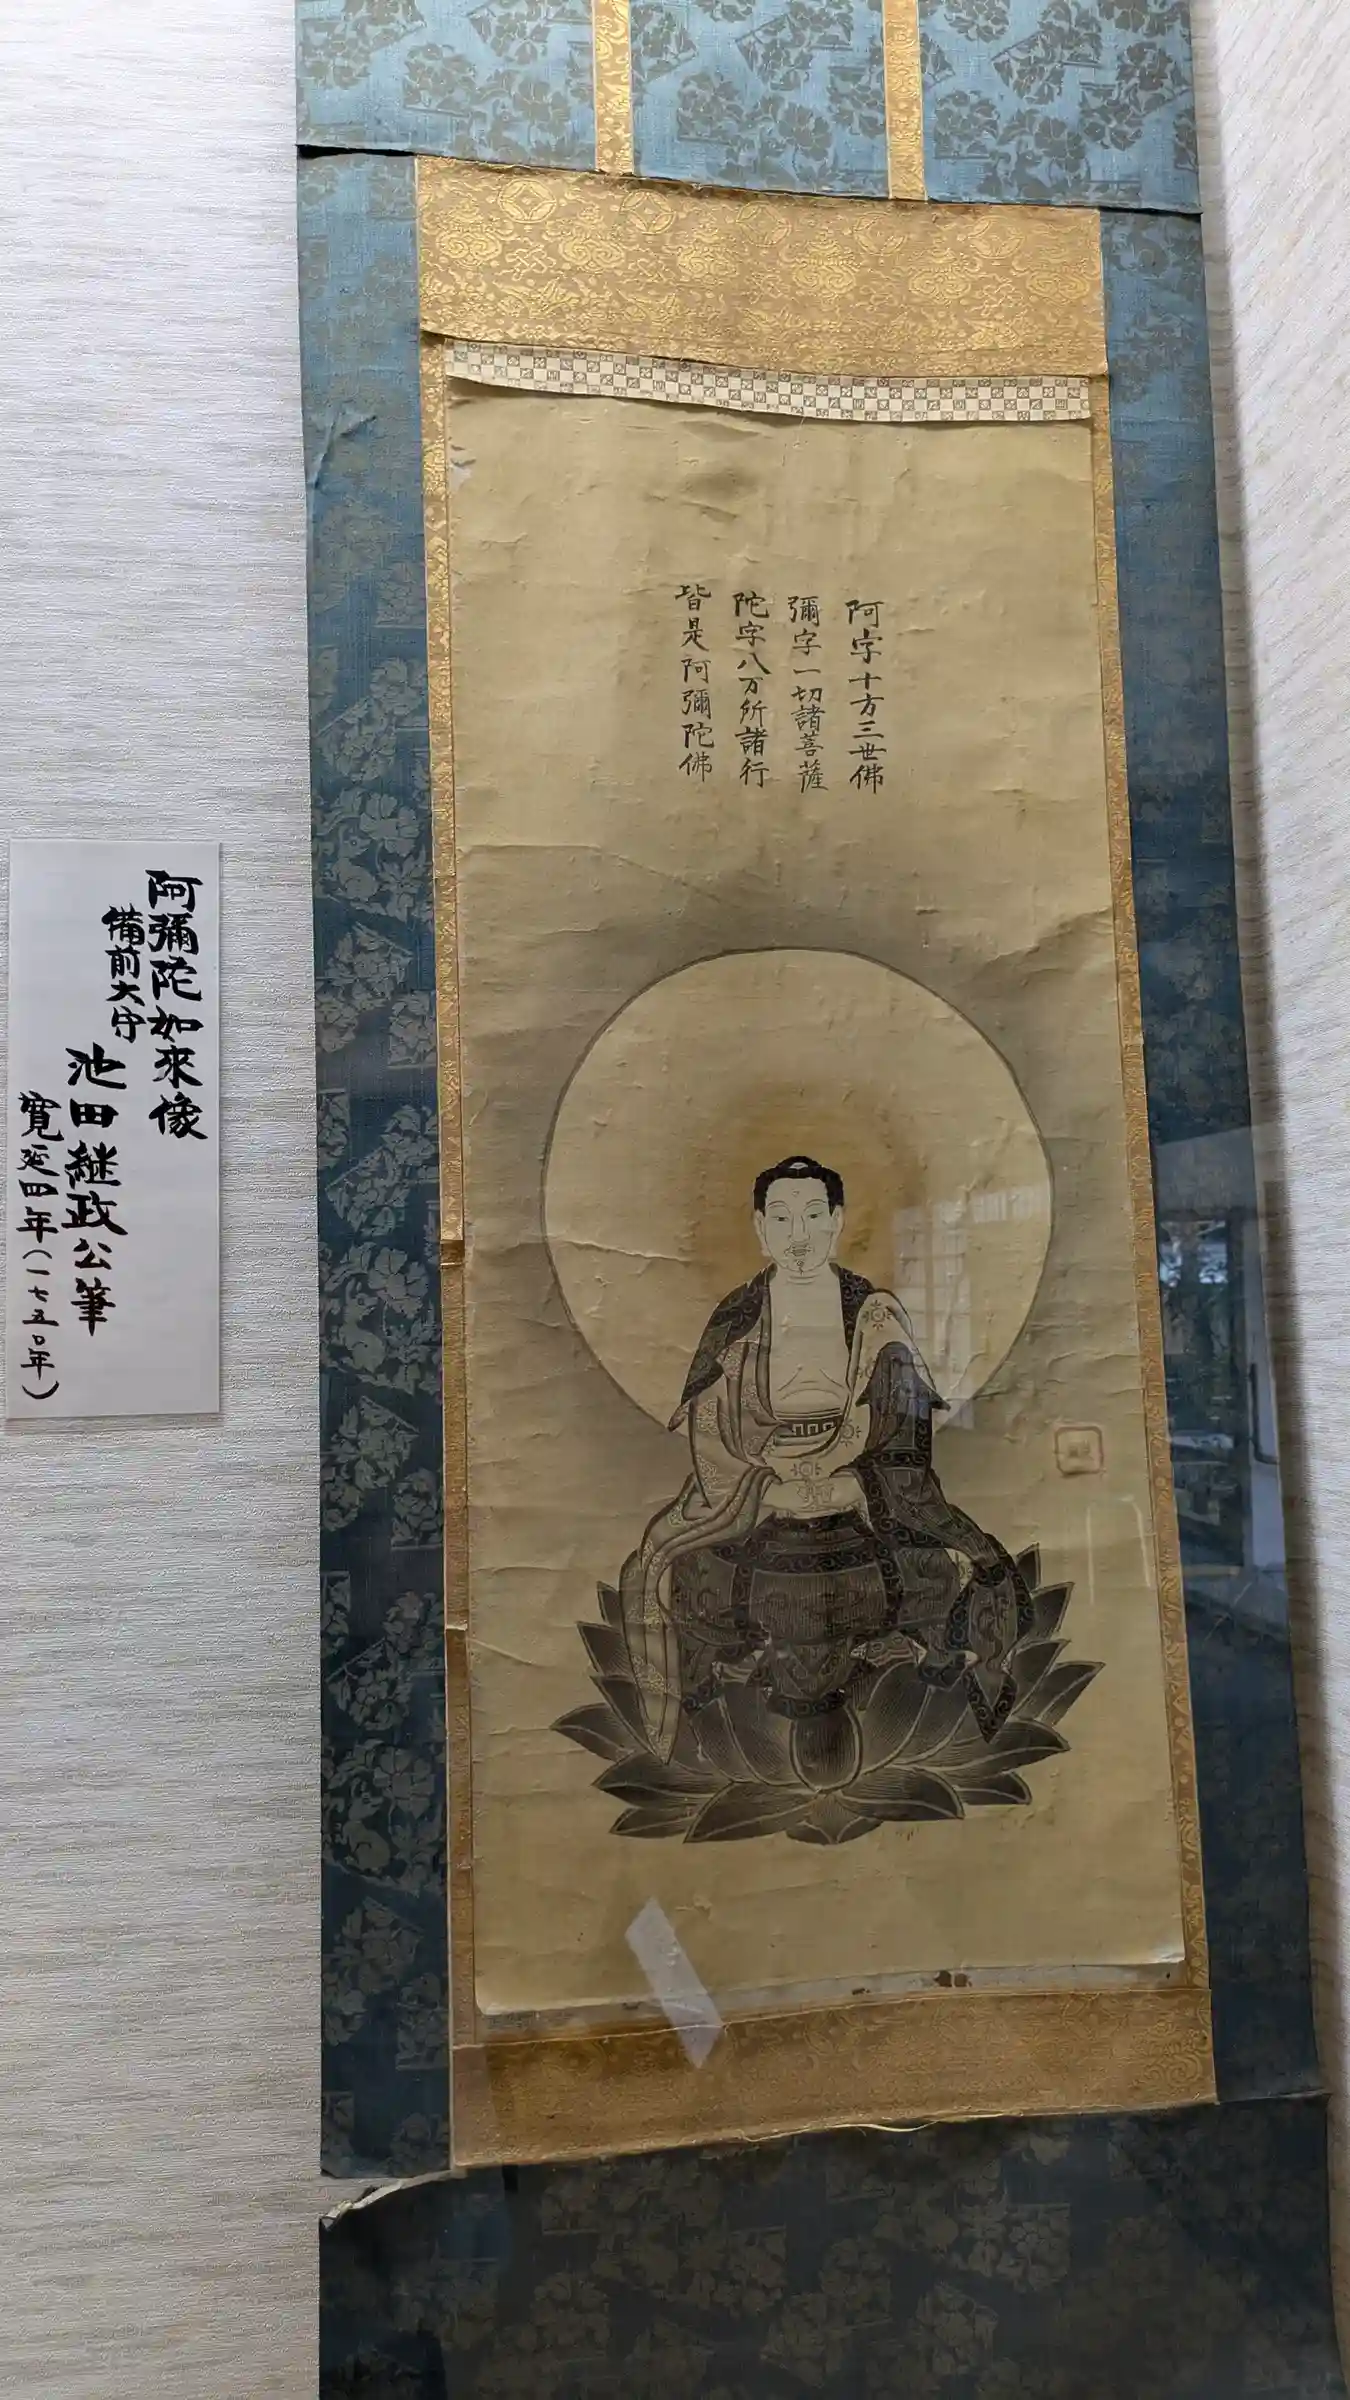 阿字十方三世佛
彌字一切諸菩薩
陀字八万所諸行
皆是阿彌陀佛
阿彌陀如来像
備前大守
池田継政公筆
寛延四年(一七五〇年)